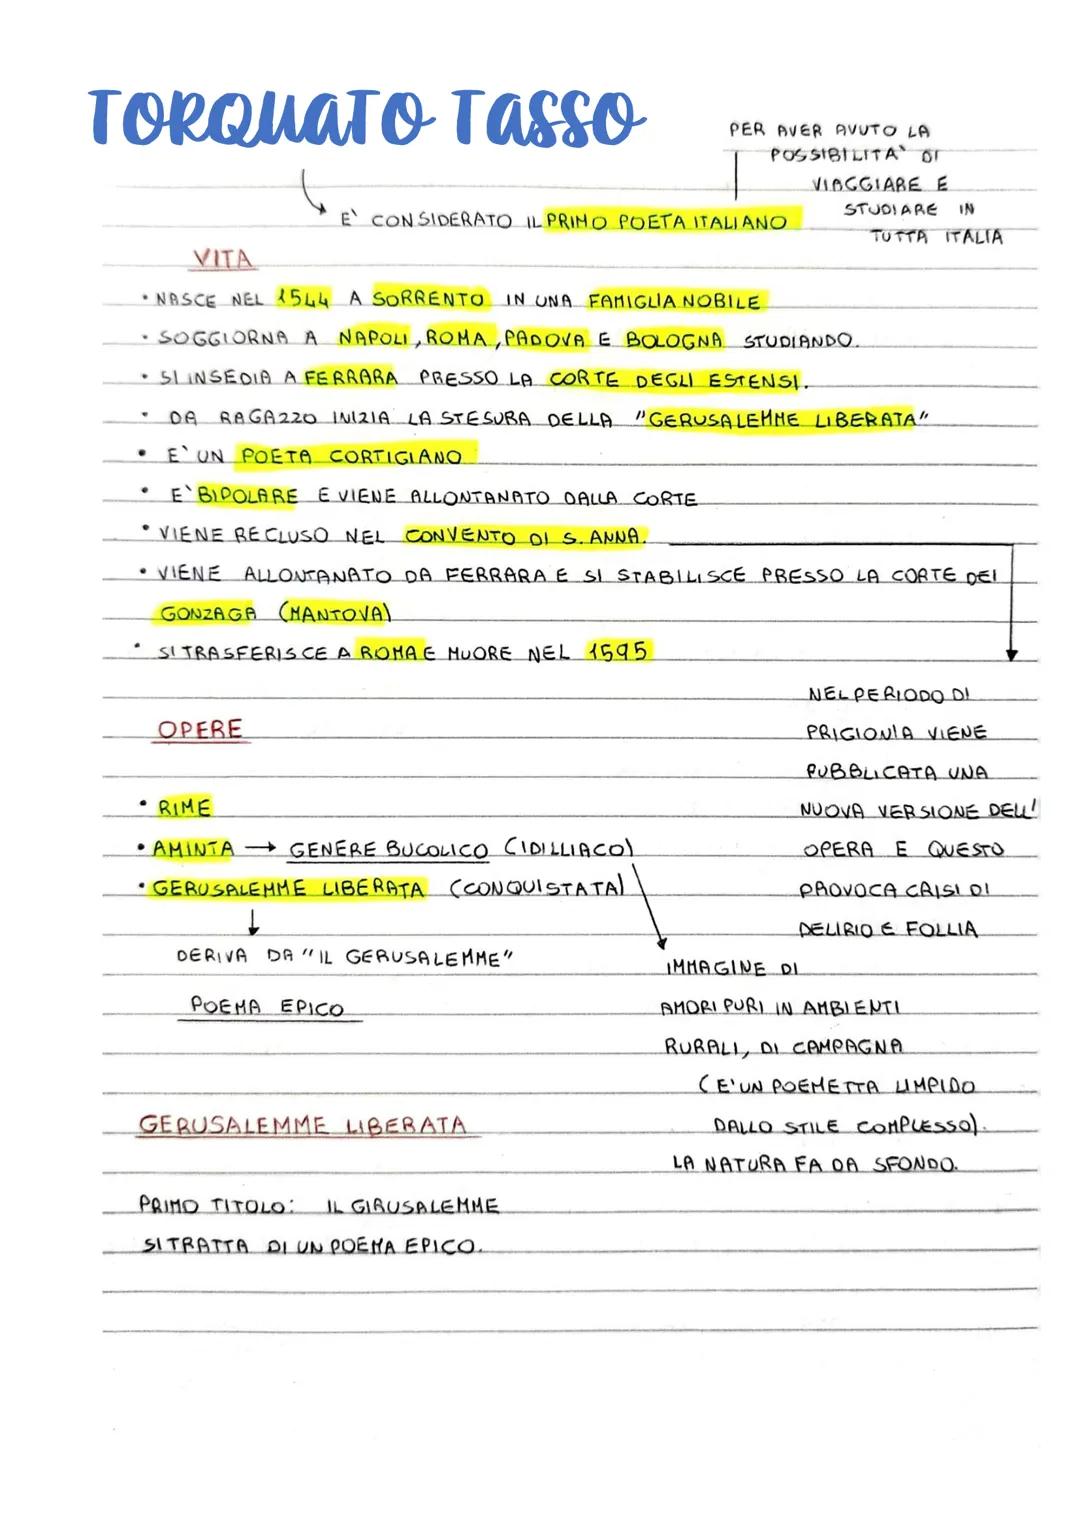 TORQUATO TASSO
PER AVER AVUTO LA
POSSIBILITA' DI
VIAGGIARE E
STUDIARE IN
TUTTA ITALIA
E' CONSIDERATO IL PRIMO POETA ITALIANO
VITA
• NASCE NEL 1544 A SORRENTO IN UNA FAMIGLIA NOBILE
• SOGGIORNA A NAPOLI, ROMA, PADOVA E BOLOGNA STUDIANDO.
• SI INSEDIA A FERRARA PRESSO LA CORTE DEGLI ESTENSI.
• DA RAGAZZO INIZIA LA STESURA DELLA "GERUSALEMME LIBERATA"
• E' UN POETA CORTIGIANO
• E' BIPOLARE E VIENE ALLONTANATO DALLA CORTE
• VIENE RECLUSO NEL CONVENTO DI S. ANNA.
• VIENE ALLONTANATO DA FERRARA E SI STABILISCE PRESSO LA CORTE DEI
GONZAGA (MANTOVA)
• SI TRASFERISCE A ROMA E MUORE NEL 1595
NEL PERIODO DI
PRIGIONIA VIENE
PUBBLICATA UNA
NUOVA VERSIONE DELL'
OPERA E QUESTO
PROVOCA CRISI DI
DELIRIO E FOLLIA
OPERE
• RIME
• AMINTA → GENERE BUCOLICO (IDILLIACO)
• GERUSALEMME LIBERATA (CONQUISTATA)
DERIVA DA "IL GERUSALEMME"
POEMA EPICO
IMMAGINE DI
AMORI PURI IN AMBIENTI
RURALI, DI CAMPAGNA
(E' UN POEMETTA LIMPIDO
DALLO STILE COMPLESSO).
LA NATURA FA DA SFONDO.
GERUSALEMME LIBERATA
PRIMO TITOLO: IL GIRUSALEMME
SI TRATTA DI UN POEMA EPICO.